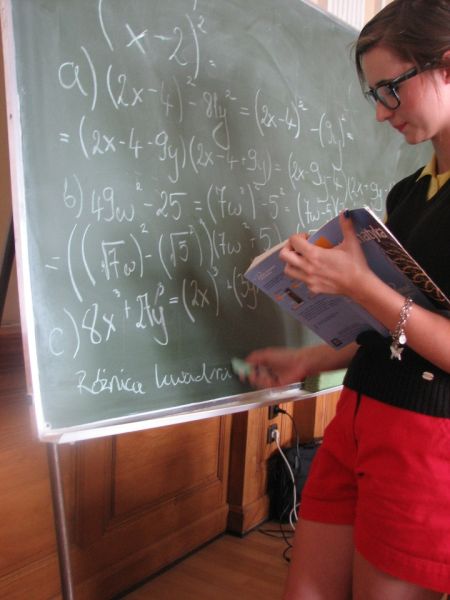 (x-2)² =
a) (2x-4)² - 81y² = (2x-4)² - (9y)² =
= (2x-4-9y)(2x-4+9y) = (2x-9y-4)(2x+9y-
b) 49w² - 25 = (7w)² - 5² = (7w-5)(7w
- ((√7w)² - (√5)²)(7w²+5)
c) 8x³ + 27y³ = (2x)³ + (3y
Różnica kwadra